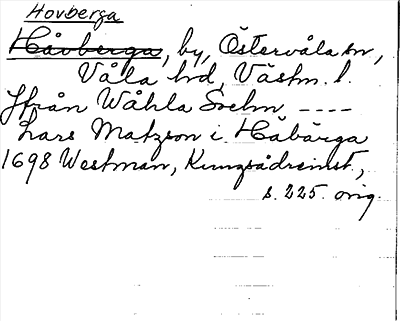 Hovberga
Håvberga, by, Östervåla sn,
Våla hd, Västm. l.
Ifrån Wåhla Sochn ----
Lars Matzson i Håbärga
1698 Westman, Kungsådreinst.,
s. 225 orig.